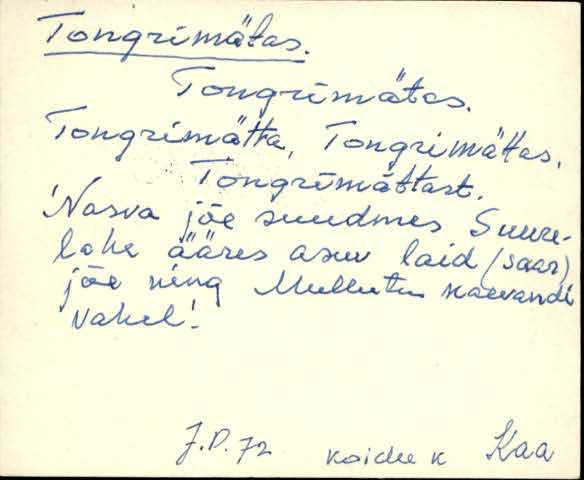 Tongrimätas.
Tongrimätas.
Tongrimätta, Tongrimättas,
Tongrimättast.
'Nasva jõe suudmes Suure-
lahe ääres asuv laid (saar)
jõe ning Mullutu kaevandi
vahel'.
J.P. 72 Kaa